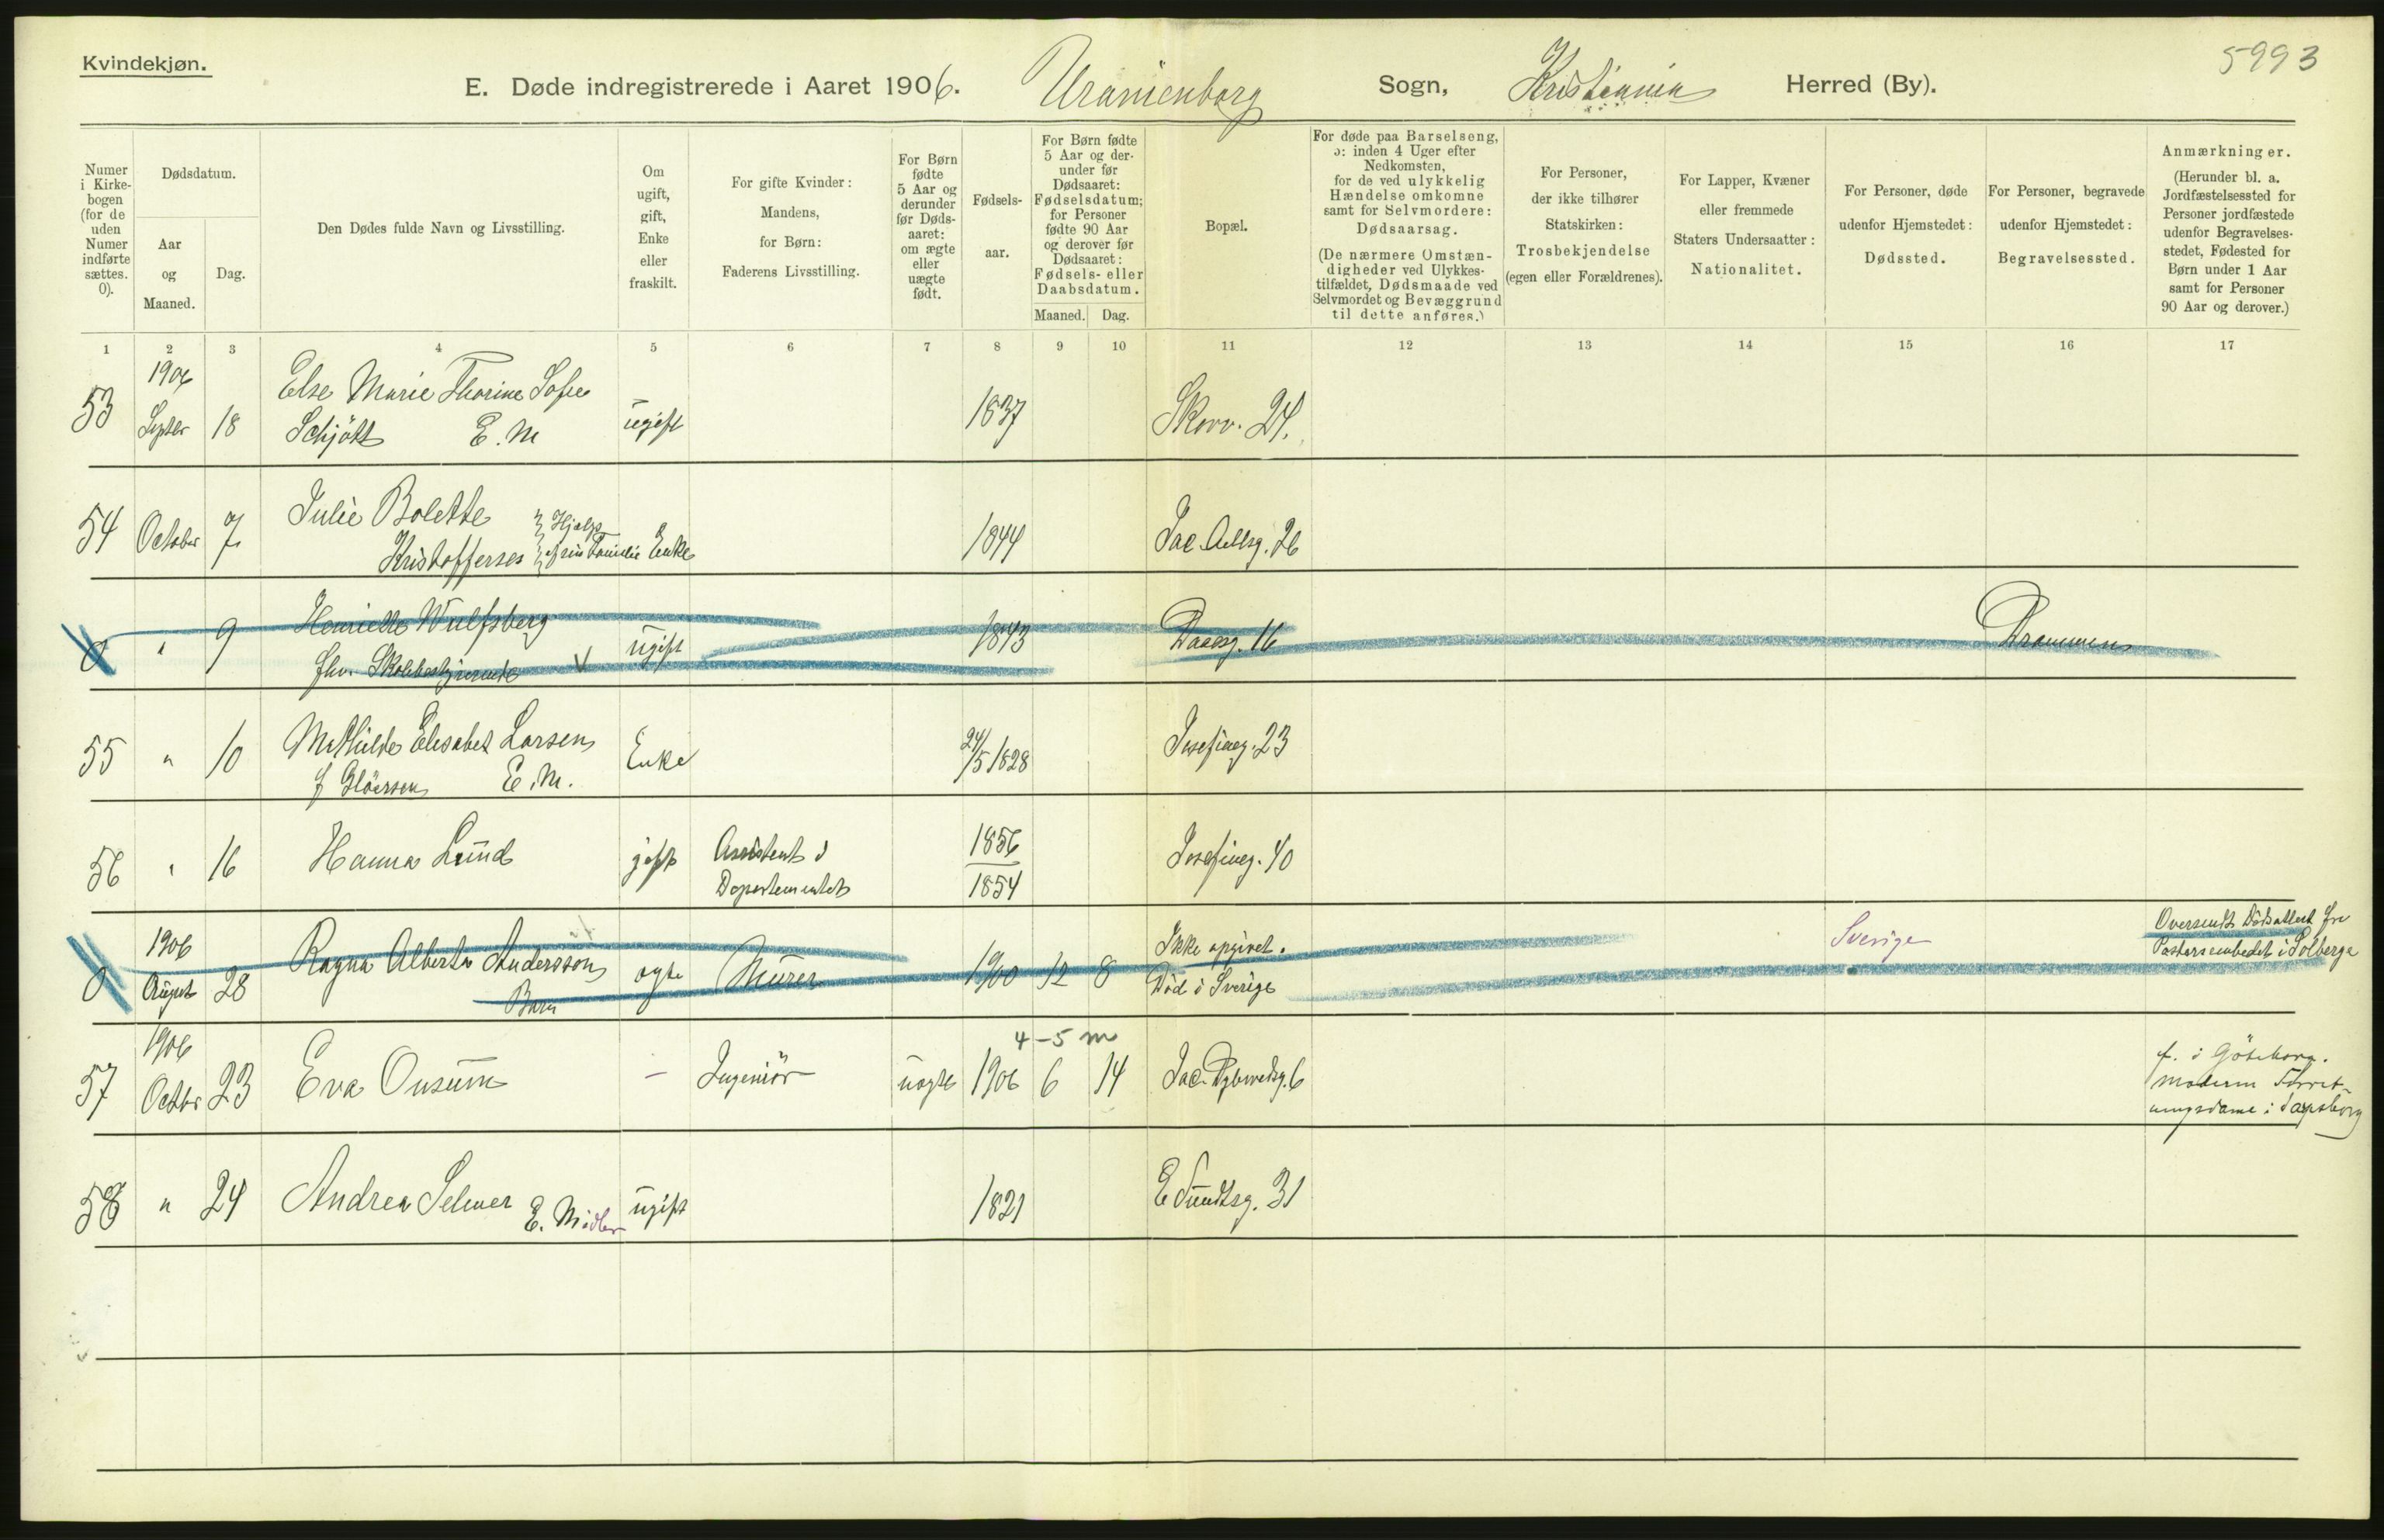 Kvindekjøn.
5993
E. Døde indregistrerede i Aaret 1906. Uranienborg Sogn, Kristiania Herred (By).
Numer i Kirke-bogen (for de uden Numer indførte sættes. 0).
Dødsdatum.
Aar og Maaned.
Dag.
Den Dødes fulde Navn og Livsstilling.
Om ugift, gift, Enke eller fraskilt.
For gifte Kvinder: Mandens, for Børn: Faderens Livsstilling.
For Børn fødte 5 Aar og derunder før Døds-aaret: om ægte eller uægte født.
Fødsels-aar.
For Børn fødte 5 Aar og der-under før Dødsaaret: Fødselsdatum; for Personer fødte 90 Aar og derover før Dødsaaret: Fødsels- eller Daabsdatum.
Maaned. Dag.
Bopæl.
For døde paa Barselseng, ɔ: inden 4 Uger efter Nedkomsten, for de ved ulykkelig Hændelse omkomne samt for Selvmordere: Dødsaarsag. (De nærmere Omstæn-digheder ved Ulykkes-tilfældet, Dødsmaade ved Selvmordet og Bevæggrund til dette anføres.)
For Personer, der ikke tilhører Statskirken: Trosbekjendelse (egen eller Forældrenes).
For Lapper, Kvæner eller fremmede Staters Undersaatter: Nationalitet.
For Personer, døde udenfor Hjemstedet: Dødssted.
For Personer, begravede udenfor Hjemstedet: Begravelsessted.
Anmærkninger. (Herunder bl. a. Jordfæstelsessted for Personer jordfæstede udenfor Begravelses-stedet, Fødested for Børn under 1 Aar samt for Personer 90 Aar og derover.)
1 2 3 4 5 6 7 8 9 10 11 12 13 14 15 16 17
1906
Else Marie Thorine Sofie
53 Septbr 18 Schjøtt E. M ugift 1837 Skovv. 24.
Julie Bolette Hjelps
54 October 7 Kristoffersen af sin Familie Enke 1844 Jac. Aallsg. 26
Henriette Wulfsberg
0 " 9 fhv. Skolebestyrerende ugift 1843 Daasg. 16 Drammen
Mathilde Elisabet Larsen
55 " 10 f Gløersen E. M. Enke 24/5 1828 Josefineg. 23
56 " 16 Hanna Lund gift Assistent i Departementet 1856 1854 Josefineg. 40
1906
0 August 28 Ragna Alberta Andersson Barn ægte Murer 1900 12 8 Ikke opgivet. Død i Sverige Sverige Oversendt Dødsattest fra Pastorsembedet i Solberga
1906 4-5 m
57 Octbr 23 Eva Onsum - Ingeniør uægte 1906 6 14 Jac. Dybwadsg. 6 f. i Göteborg.
moderen Forret-
ningsdame i Sarpsborg
58 " 24 Andrea Selmer E. Midler ugift 1821 E Sundtsg. 31